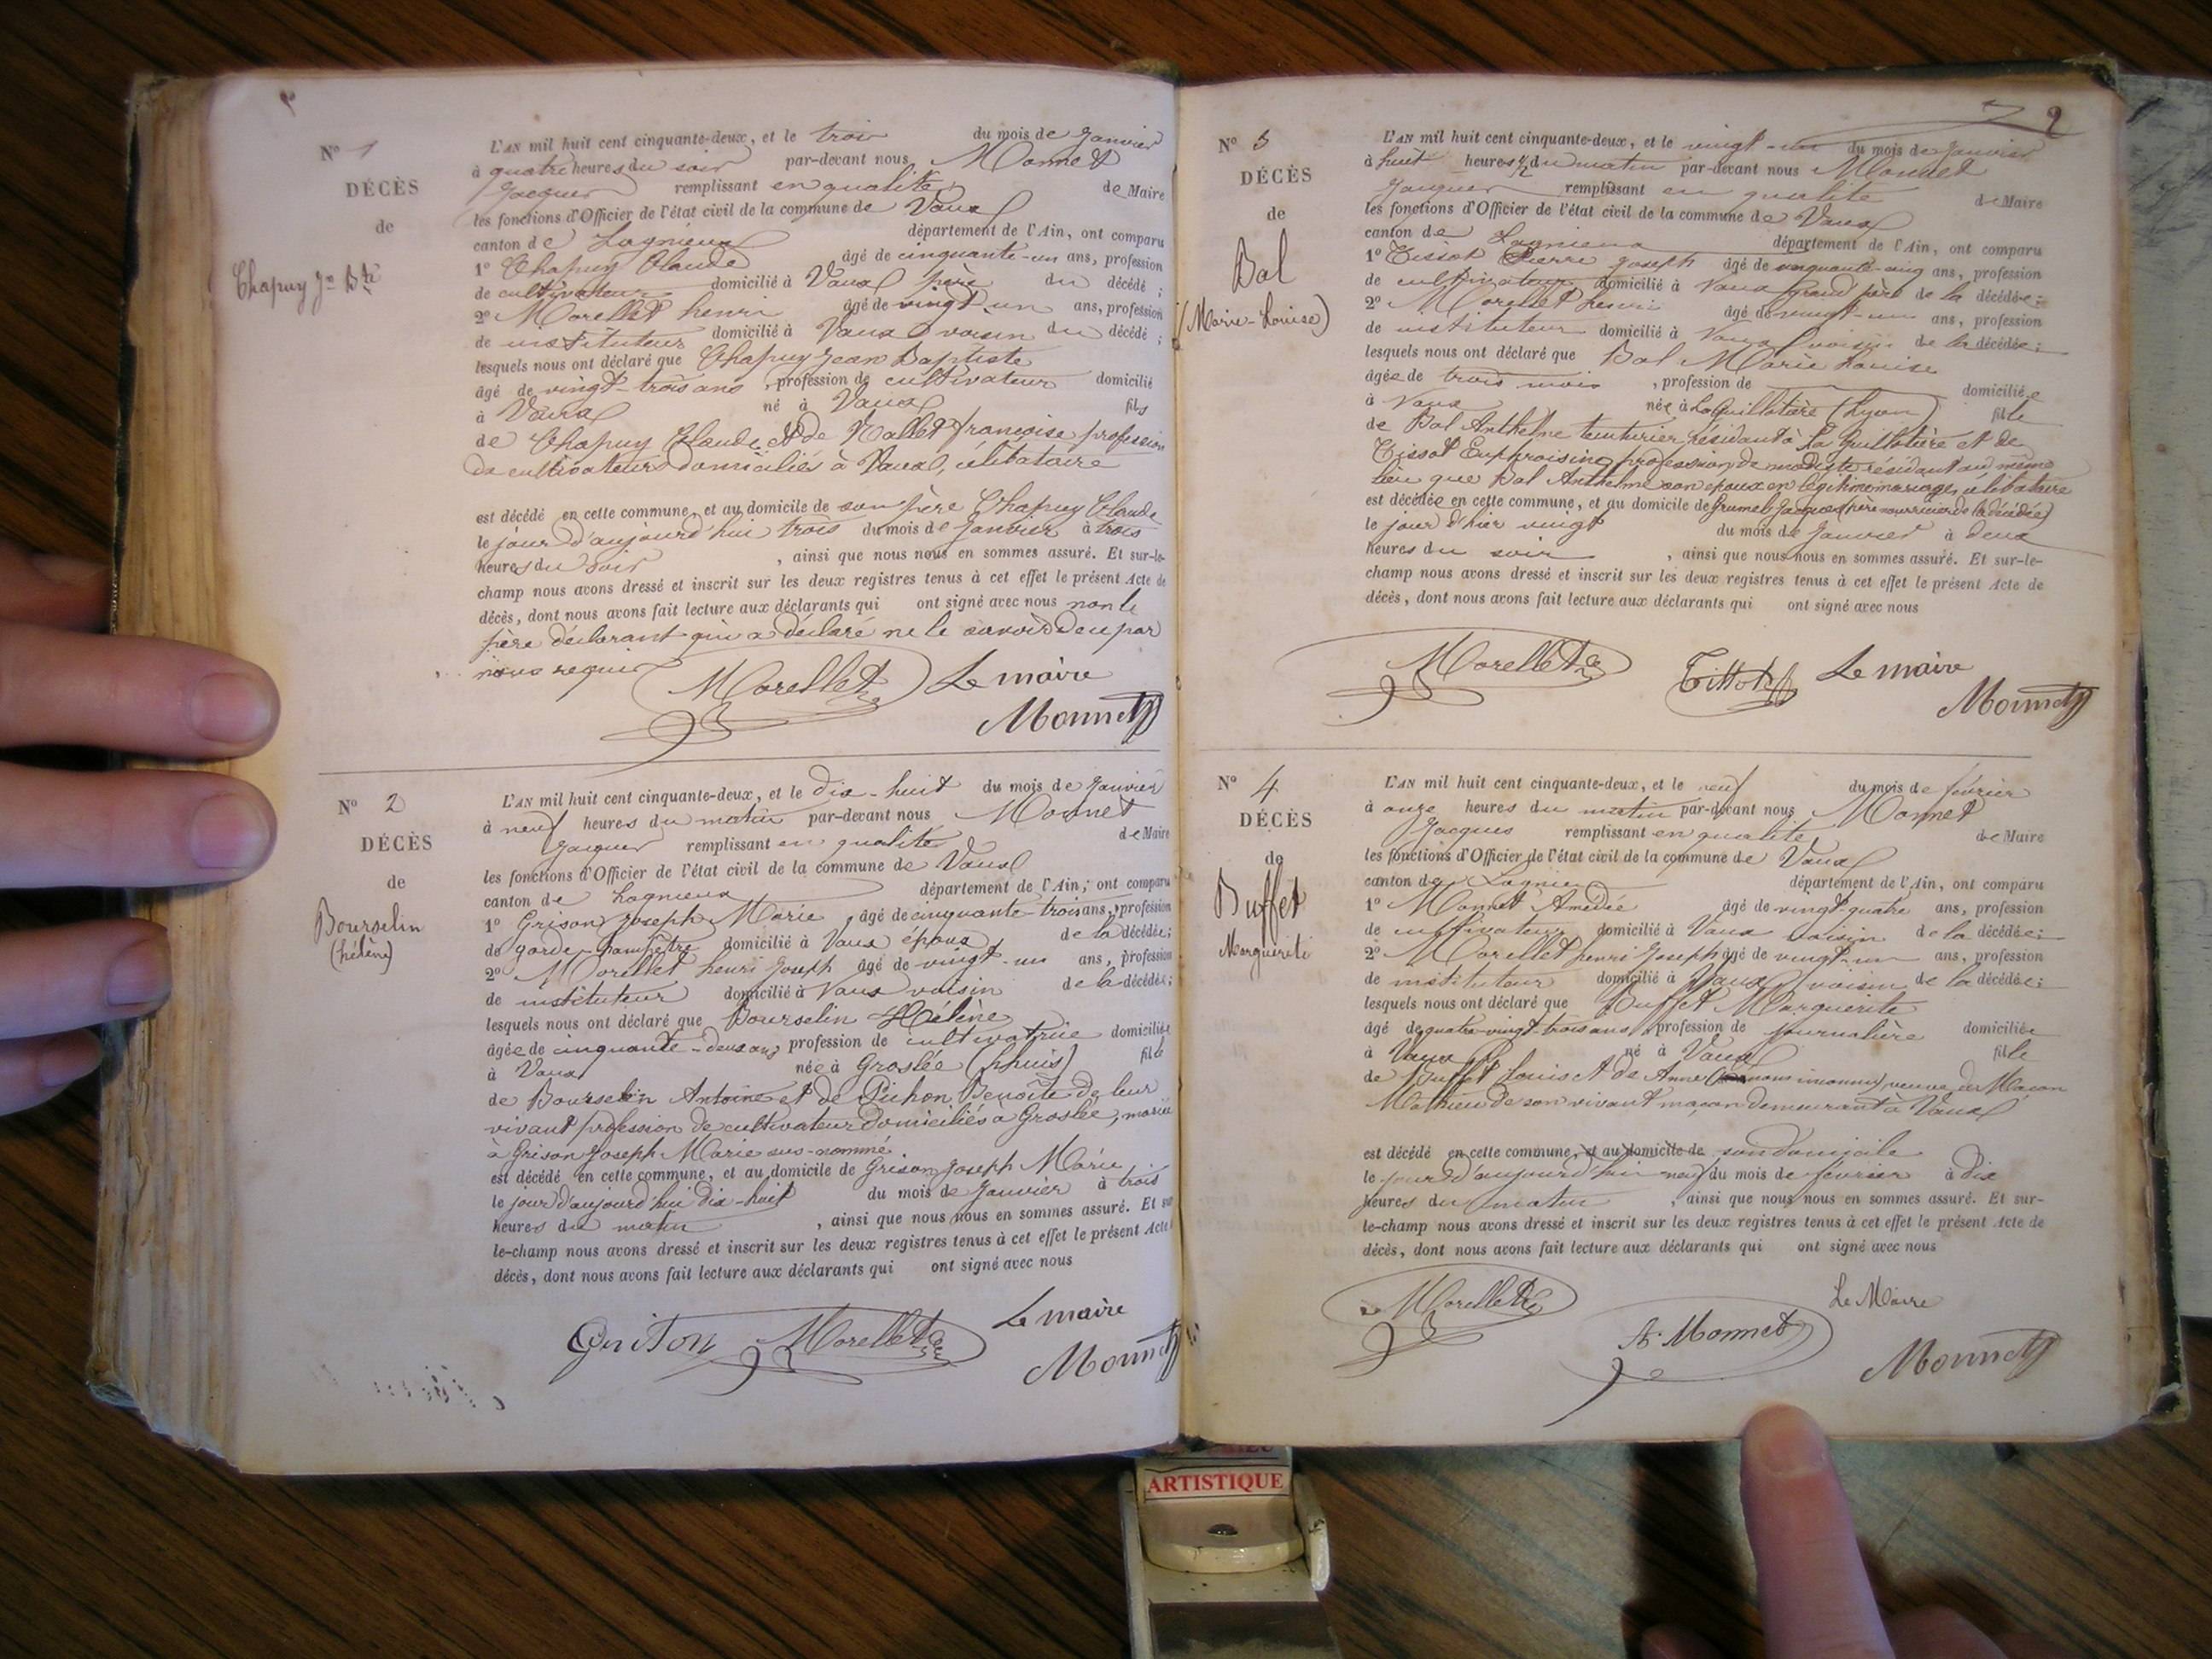 N° 1
DÉCÈS
de
Chapuy Jn Bte
L'AN mil huit cent cinquante-deux, et le trois du mois de Janvier
à quatre heures du soir par-devant nous Monnet
Jacques remplissant en qualité de Maire
les fonctions d'Officier de l'état civil de la commune de Vaux
canton de Lagnieux département de l'Ain, ont comparu
1° Chapuy Claude âgé de cinquante-un ans, profession
de cultivateur domicilié à Vaux père du décédé ;
2° Morellet henri âgé de vingt-un ans, profession
de instituteur domicilié à Vaux voisin du décédé ;
lesquels nous ont déclaré que Chapuy Jean Baptiste
âgé de vingt-trois ans, profession de cultivateur domicilié
à Vaux né à Vaux fils
de Chapuy Claude et de Mallet françoise profession
de cultivateurs domiciliés à Vaux, célibataire
est décédé en cette commune, et au domicile de son père Chapuy Claude
le jour d'aujourd'hui trois du mois de Janvier à trois
heures du soir, ainsi que nous nous en sommes assuré. Et sur-le-
champ nous avons dressé et inscrit sur les deux registres tenus à cet effet le présent Acte de
décès, dont nous avons fait lecture aux déclarants qui ont signé avec nous non le
père déclarant qui a déclaré ne le savoir de ce par
nous requis
Morellet Le maire
Monnet
N° 2
DÉCÈS
de
Bourselin
(hélène)
L'AN mil huit cent cinquante-deux, et le dix-huit du mois de Janvier
à neuf heures du matin par-devant nous Monnet
Jacques remplissant en qualité de Maire
les fonctions d'Officier de l'état civil de la commune de Vaux
canton de Lagnieux département de l'Ain, ont comparu
1° Grison Joseph Marie, âgé de cinquante-trois ans, profession
de garde-champêtre domicilié à Vaux époux de la décédée ;
2° Morellet henri Joseph âgé de vingt-un ans, profession
de instituteur domicilié à Vaux voisin de la décédée ;
lesquels nous ont déclaré que Bourselin Hélène
âgée de cinquante-deux ans, profession de cultivatrice domiciliée
à Vaux née à Groslée (Lhuis) fille
de Bourselin Antoine et de Pichon Benoîte de leur
vivant profession de cultivateur domiciliés à Groslée, mariée
à Grison Joseph Marie sus-nommé
est décédé en cette commune, et au domicile de Grison Joseph Marie
le jour d'aujourd'hui dix-huit du mois de Janvier à trois
heures du matin, ainsi que nous nous en sommes assuré. Et sur
le-champ nous avons dressé et inscrit sur les deux registres tenus à cet effet le présent Acte
décès, dont nous avons fait lecture aux déclarants qui ont signé avec nous
Grison Morellet Le maire
Monnet
2
N° 3
DÉCÈS
de
Bal
(Marie-Louise)
L'AN mil huit cent cinquante-deux, et le vingt-un du mois de Janvier
à huit heures 1/2 du matin par-devant nous Monnet
Jacques remplissant en qualité de Maire
les fonctions d'Officier de l'état civil de la commune de Vaux
canton de Lagnieux département de l'Ain, ont comparu
1° Tissot Pierre Joseph âgé de cinquante-cinq ans, profession
de cultivateur domicilié à Vaux grand père de la décédée ;
2° Morellet henri âgé de vingt-un ans, profession
de instituteur domicilié à Vaux voisin de la décédée ;
lesquels nous ont déclaré que Bal Marie Louise
âgée de trois mois, profession de domiciliée
à Vaux née à La Guillotière (Lyon) fille
de Bal Anthelme teinturier résidant à La Guillotière et de
Tissot Euphroisine profession de modiste résidant au même
lieu que Bal Anthelme son époux en légitime mariage, célibataire
est décédée en cette commune, et au domicile de Grumel Jacques (père nourricier de la décédée)
le jour d'hier vingt du mois de Janvier à deux
heures du soir, ainsi que nous nous en sommes assuré. Et sur-le-
champ nous avons dressé et inscrit sur les deux registres tenus à cet effet le présent Acte de
décès, dont nous avons fait lecture aux déclarants qui ont signé avec nous
Morellet Tissot Le maire
Monnet
N° 4
DÉCÈS
de
Buffet
Marguerite
L'AN mil huit cent cinquante-deux, et le neuf du mois de février
à onze heures du matin par-devant nous Monnet
Jacques remplissant en qualité de Maire
les fonctions d'Officier de l'état civil de la commune de Vaux
canton de Lagnieu département de l'Ain, ont comparu
1° Monnet Amédée âgé de vingt-quatre ans, profession
de cultivateur domicilié à Vaux voisin de la décédée ;
2° Morellet henri Joseph âgé de vingt-un ans, profession
de instituteur domicilié à Vaux voisin de la décédée ;
lesquels nous ont déclaré que Buffet Marguerite
âgé de quatre-vingt-trois ans, profession de journalière domiciliée
à Vaux né à Vaux fille
de Buffet Louis et de Anne ( noms inconnus) veuve de Maçon
Mathieu de son vivant maçon demeurant à Vaux
est décédé en cette commune, et au domicile de son domicile
le jour d'aujourd'hui neuf du mois de février à dix
heures du matin, ainsi que nous nous en sommes assuré. Et sur-
le-champ nous avons dressé et inscrit sur les deux registres tenus à cet effet le présent Acte de
décès, dont nous avons fait lecture aux déclarants qui ont signé avec nous
Morellet A. Monnet Le Maire
Monnet
ARTISTIQUE